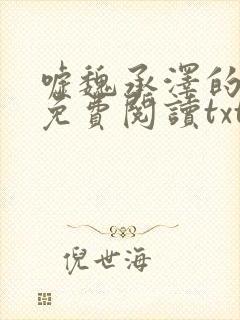 嘘魏承澤的
免費閱讀txt
倪世海